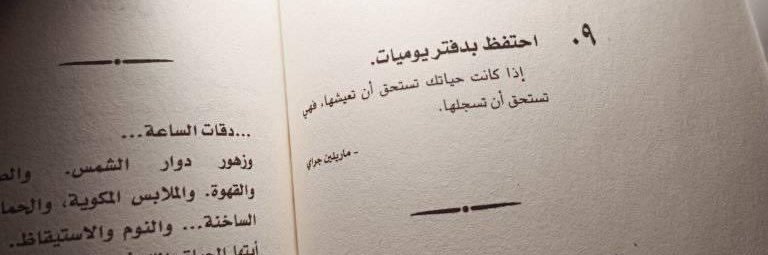 ٠٩ احتفظ بدفتر يوميات.
إذا كانت حياتك تستحق أن تعيشها، فهي
تستحق أن تسجلها.
- ماريلين جراي
...دقات الساعة...
وزهور دوار الشمس.
والقهوة. والملابس المكوية،
الساخنة... والنوم والاستيقاظ..
أيتها